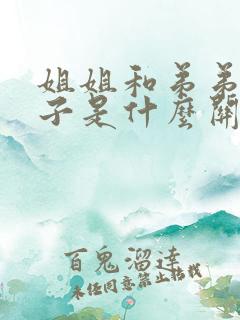 姐姐和弟弟
子是什麼關
百鬼溜達
未经同意禁止转载